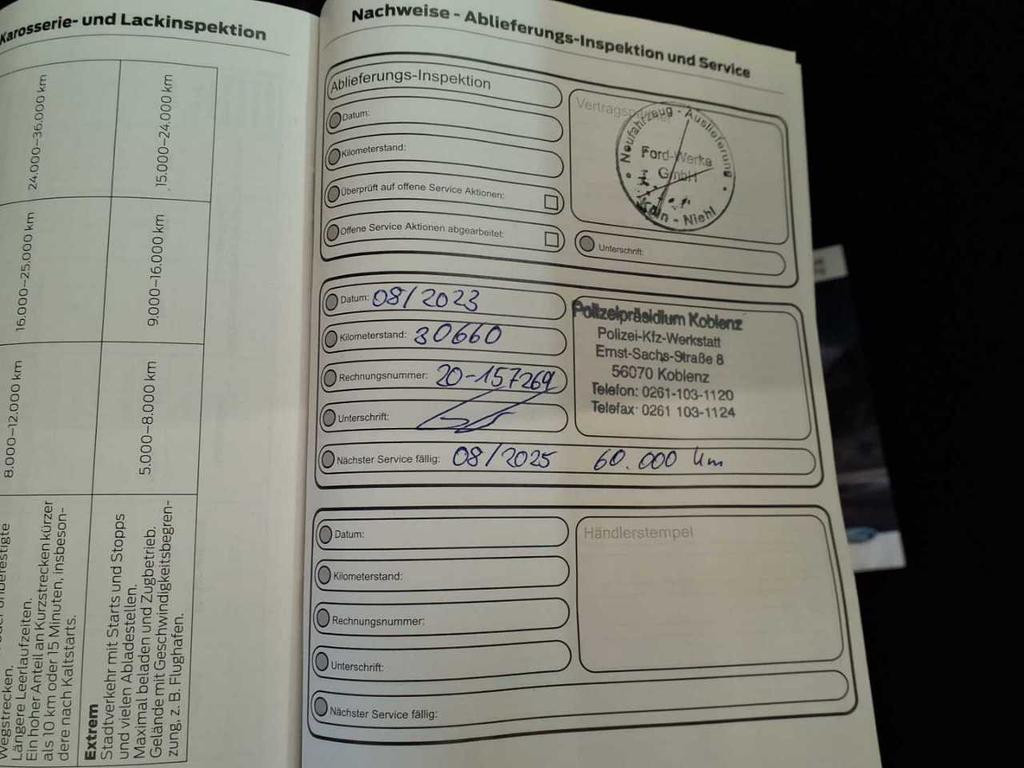 Karosserie- und Lackinspektion
24.000–36.000 km
15.000–24.000 km
16.000–25.000 km
9.000–16.000 km
8.000–12.000 km
5.000–8.000 km
Wegstrecken.
Längere Leerlaufzeiten.
Ein hoher Anteil an Kurzstrecken kürzer
als 10 km oder 15 Minuten, insbeson-
dere nach Kaltstarts.
Extrem
Stadtverkehr mit Starts und Stopps
und vielen Abladestellen.
Maximal beladen und Zugbetrieb.
Gelände mit Geschwindigkeitsbegren-
zung, z. B. Flughafen.
Nachweise - Ablieferungs-Inspektion und Service
Ablieferungs-Inspektion
Datum:
Kilometerstand:
Überprüft auf offene Service Aktionen:
Offene Service Aktionen abgearbeitet:
Neufahrzeug - Auslieferung
Ford-Werke
GmbH
Köln - Niehl
Unterschrift:
Datum: 08/2023
Kilometerstand: 30660
Rechnungsnummer: 20-157269
Unterschrift:
Nächster Service fällig: 08/2025 60.000 km
Polizeipräsidium Koblenz
Polizei-Kfz-Werkstatt
Ernst-Sachs-Straße 8
56070 Koblenz
Telefon: 0261-103-1120
Telefax: 0261 103-1124
Datum:
Kilometerstand:
Rechnungsnummer:
Unterschrift:
Nächster Service fällig:
Händlerstempel